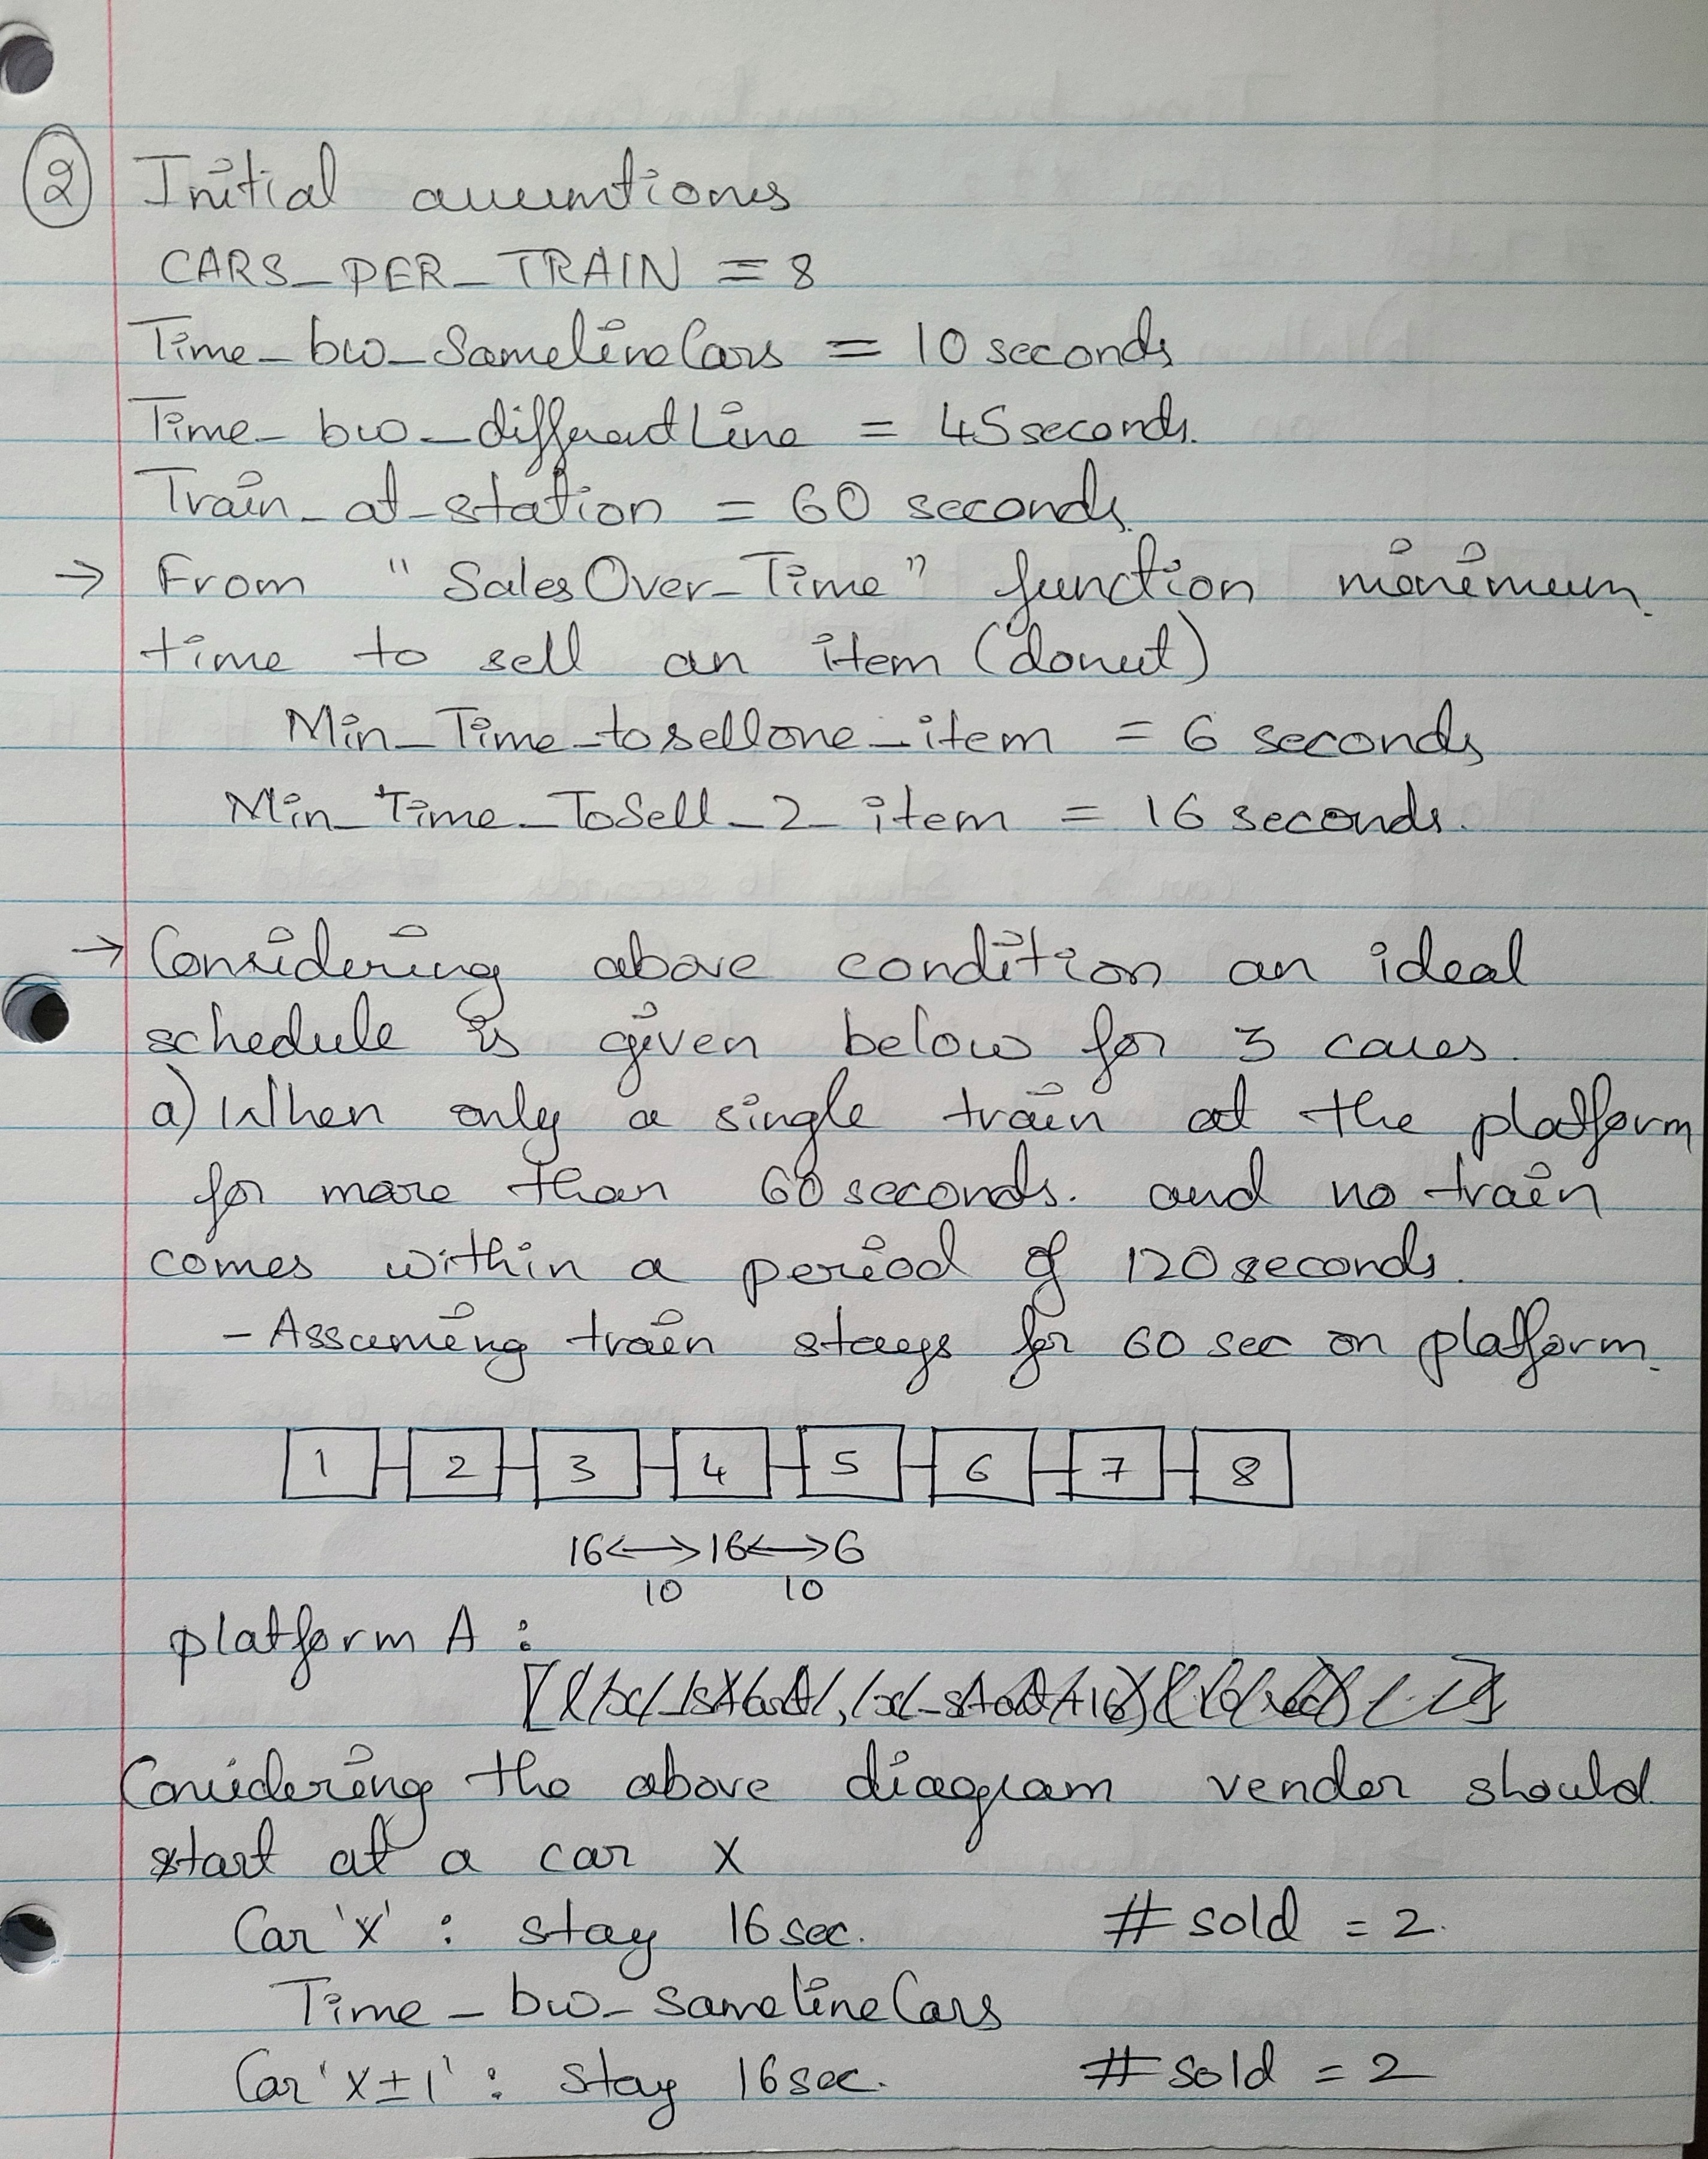 2 Initial assumtiones
CARS_PER_TRAIN = 8
Time_bw_SamelineCars = 10 seconds
Time_bw_differentLine = 45 seconds.
Train_at_station = 60 seconds.
→ From "SalesOver_Time" function minimum
time to sell an item (donut)
Min_Time_tosellone_item = 6 seconds
Min_Time_ToSell_2_item = 16 seconds.
→ Considering above condition an ideal
schedule is given below for 3 cases.
a) When only a single train at the platform
for more than 60 seconds. and no train
comes within a period of 120 seconds.
- Assuming train stays for 60 sec on platform.
1 2 3 4 5 6 7 8
16 ↔ 16 ↔ 6
10 10
platform A :
Considering the above diagram vender should
start at a car X
Car 'X' : stay 16 sec. # sold = 2.
Time_bw_samelineCars
Car 'X±1' : stay 16 sec. # sold = 2